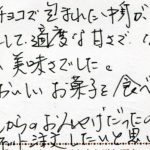 チョコで包まれたい桃が
して適度な甘さで、
い美味さでした。
おいしいお菓子を食べ
しからのおみやげだったの
に注文したいと思い